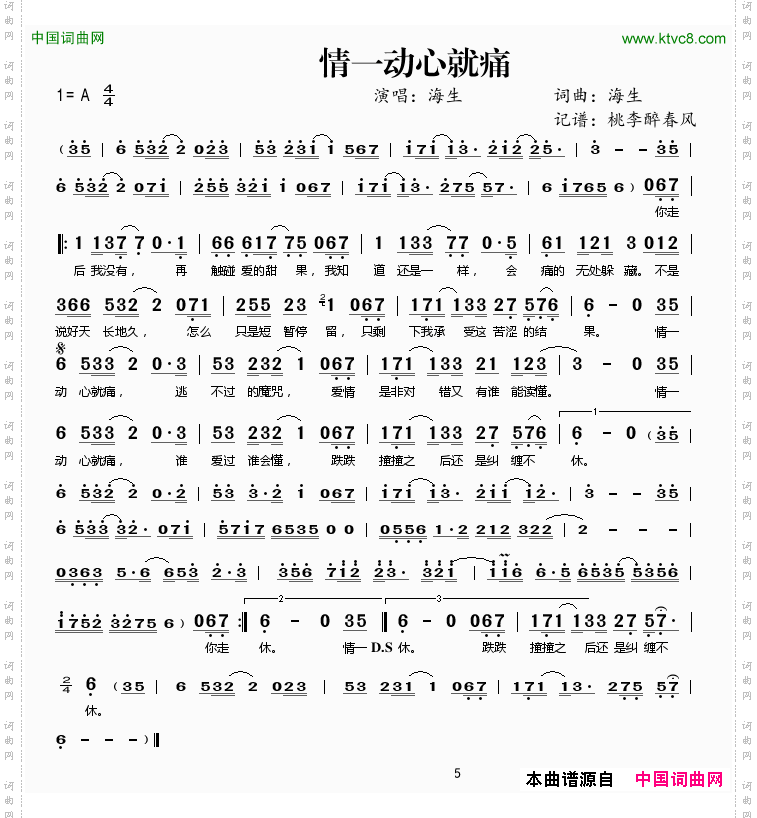 中国词曲网 www.ktvc8.com
情一动心就痛
1= A 4/4 演唱：海生 词曲：海生
记谱：桃李醉春风
（35 | 6 532 2 023 | 53 231 1 567 | 171 13· 212 25· | 3 - - 35 |
6 532 2 071 | 255 321 1 067 | 171 13· 275 57· | 6 1765 6 ） 067 |
你走
‖: 1 137 7 0·1 | 66 617 75 067 | 1 133 77 0·5 | 61 121 3 012 |
后 我没有， 再 触碰 爱的甜 果，我知 道 还是一 样， 会 痛的 无处躲 藏。不是
366 532 2 071 | 255 23 2 1 067 | 171 133 27 576 | 6 - 0 35 |
说好天 长地久， 怎么 只是短 暂停 留，只剩 下我承 受这 苦涩 的结 果。 情一
6 533 2 0·3 | 53 232 1 067 | 171 133 21 123 | 3 - 0 35 |
动 心就痛， 逃 不过 的魔咒， 爱情 是非对 错又 有谁 能读懂。 情一
1
6 533 2 0·3 | 53 232 1 067 | 171 133 27· 576 | 6 - 0 （35 |
动 心就痛， 谁 爱过 谁会懂， 跌跌 撞撞之 后还 是纠 缠不 休。
6 532 2 0·2 | 53 3·2 1 067 | 171 13· 211 12· | 3 - - 35 |
6 533 32· 071 | 5717 6535 0 0 | 0556 1·2 212 322 | 2 - - |
0363 5·6 653 2·3 | 356 712 23· 321 | 116 6·5 6535 5356 |
1752 3275 6 ） 067 :‖ 2 6 - 0 35 ‖ 3 6 - 0 067 | 171 133 27 57· |
你走 休。 情一 D.S 休。 跌跌 撞撞之 后还 是纠 缠不
2/4 6 （35 | 6 532 2 023 | 53 231 1 067 | 171 13· 275 57 |
休。
6 - - - ）‖
5 本曲谱源自 中国词曲网